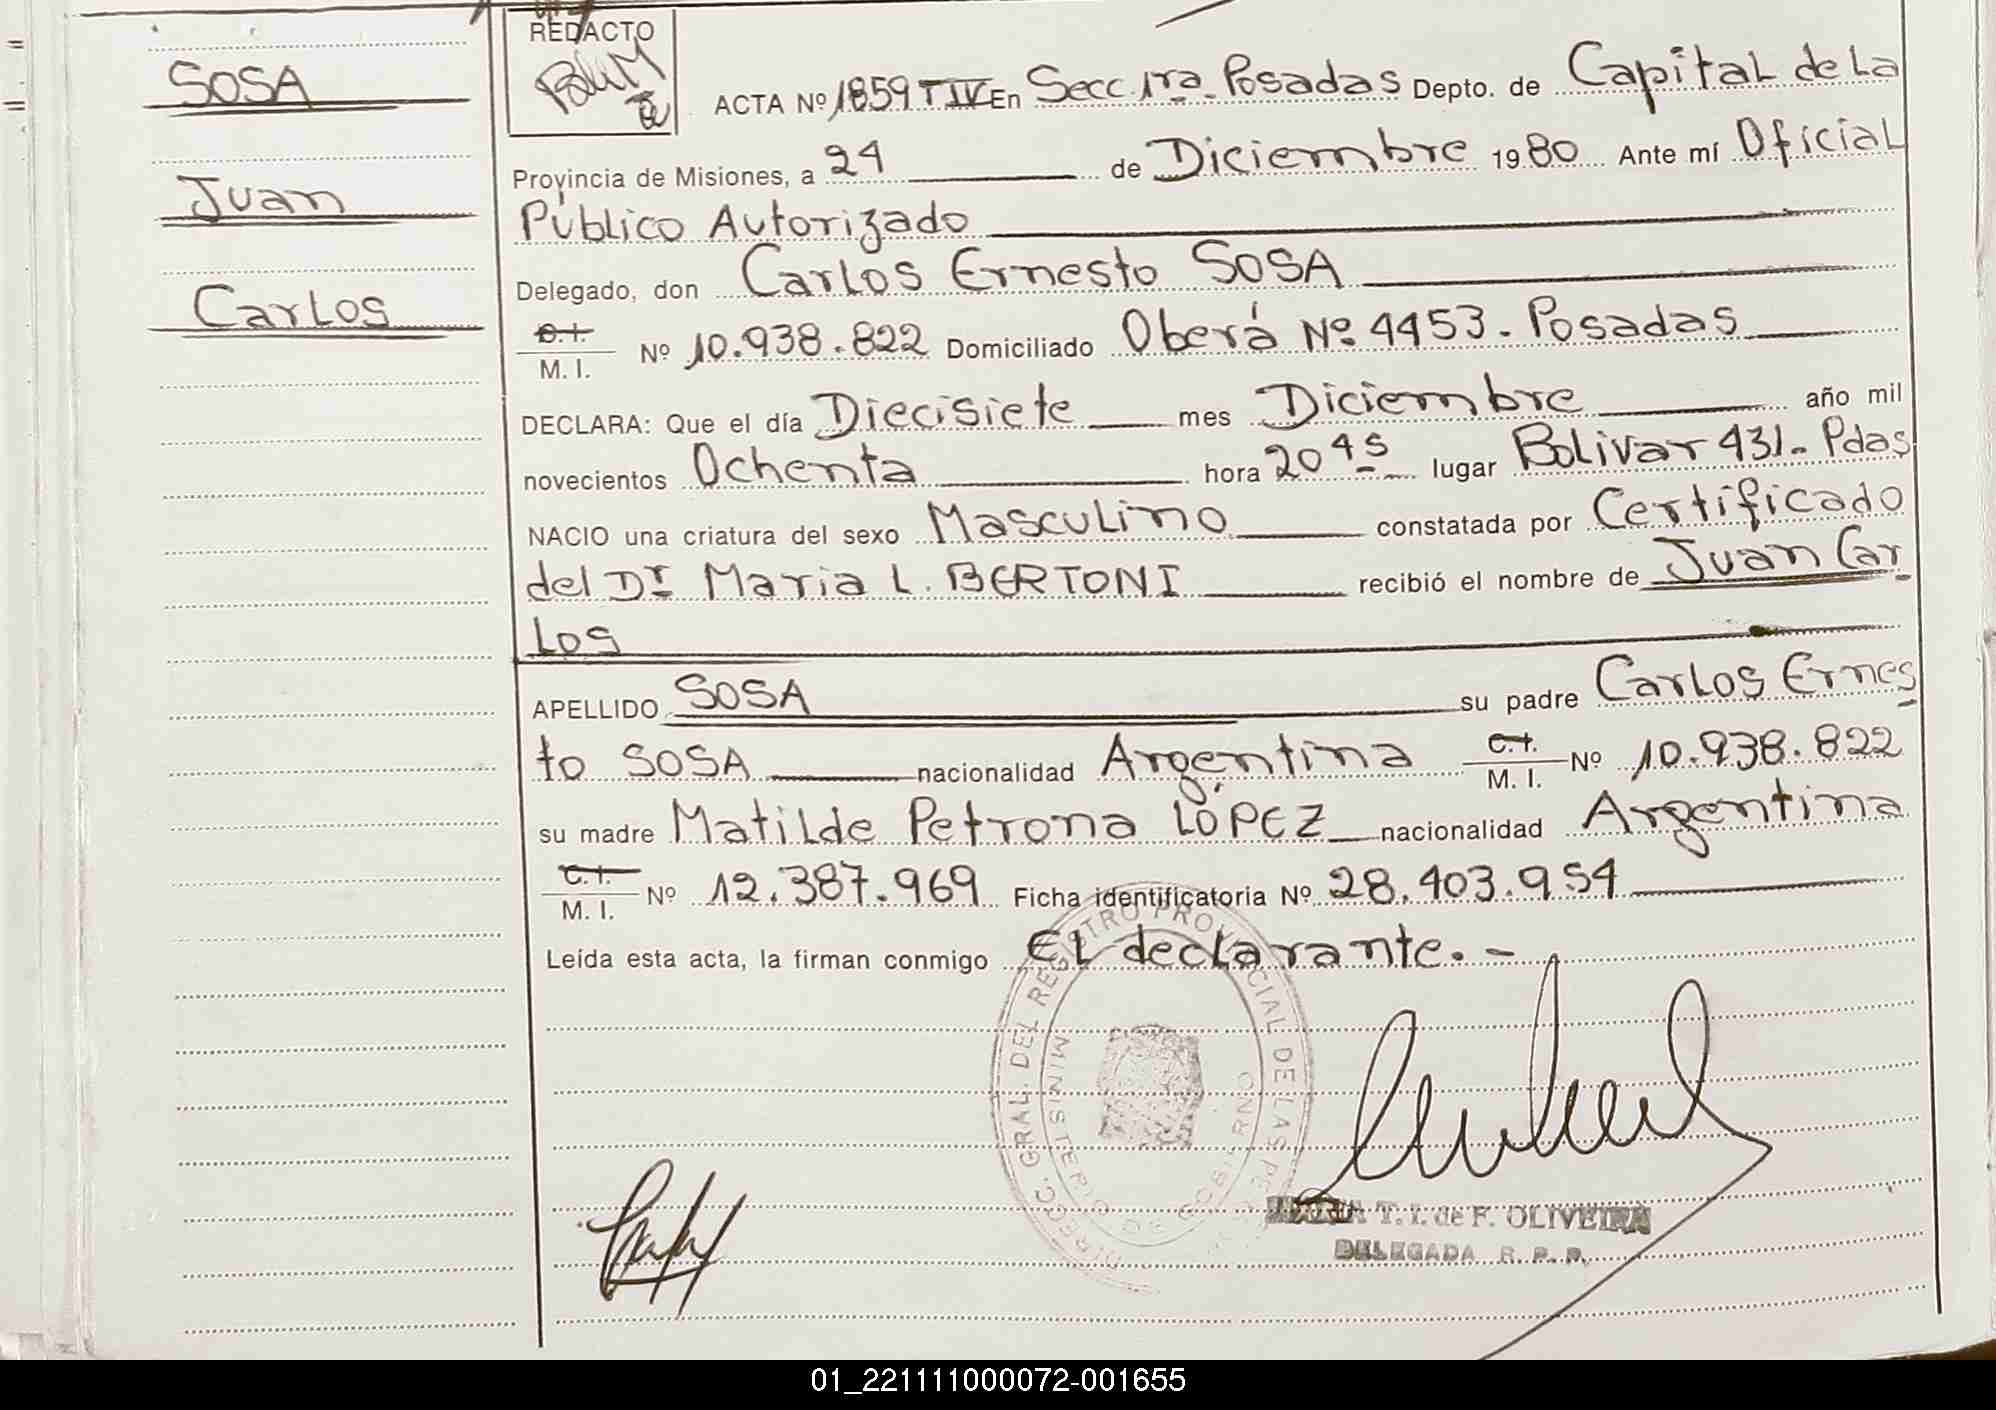 SOSA
Juan
Carlos
REDACTO
ACTA Nº 1859 T IV En Secc. 1ra. Posadas Depto. de Capital de La
Provincia de Misiones, a 24 de Diciembre 1980 Ante mí Oficial
Público Autorizado
Delegado, don Carlos Ernesto SOSA
C.I. M. I. Nº 10.938.822 Domiciliado Oberá Nº 4453 - Posadas
DECLARA: Que el día Diecisiete mes Diciembre año mil
novecientos Ochenta hora 20 45 lugar Bolivar 431 - Pdas
NACIO una criatura del sexo Masculino constatada por Certificado
del Dr. Maria L. BERTONI recibió el nombre de Juan Car
Los
APELLIDO SOSA su padre Carlos Ernes
to SOSA nacionalidad Argentina C.I. M. I. Nº 10.938.822
su madre Matilde Petrona LÓPEZ nacionalidad Argentina
C.I. M. I. Nº 12.387.969 Ficha identificatoria Nº 28.403.954
Leída esta acta, la firman conmigo EL declarante. -
DIRECC. GRAL. DEL REGISTRO PROVINCIAL DE LAS
MINISTERIO DE GOBIERNO
MARIA T. I. de F. OLIVEIRA
DELEGADA R. P. P.
01_221111000072-001655